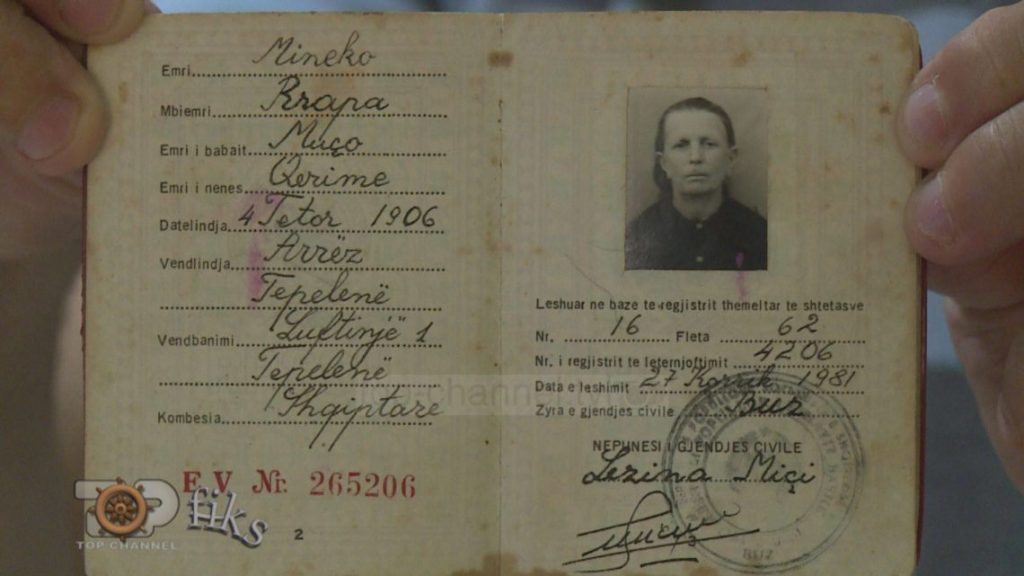 Emri Mineko
Mbiemri Rrapa
Emri i babait Muço
Emri i nenes Qerime
Datelindja 4 Tetor 1906
Vendlindja Arrëz
Tepelenë
Vendbanimi Luftinjë 1
Tepelenë
Kombesia Shqiptare
E.V Nr. 265206
2
TOP fiks
TOP CHANNEL
Leshuar ne baze te regjistrit themeltar te shtetasve
Nr. 16 Fleta 62
Nr. i regjistrit te leternjoftimit 4206
Data e leshimit 27 Korrik 1981
Zyra e gjendjes civile Buz
NEPUNESI I GJENDJES CIVILE
Lezina Miçi
BUZ